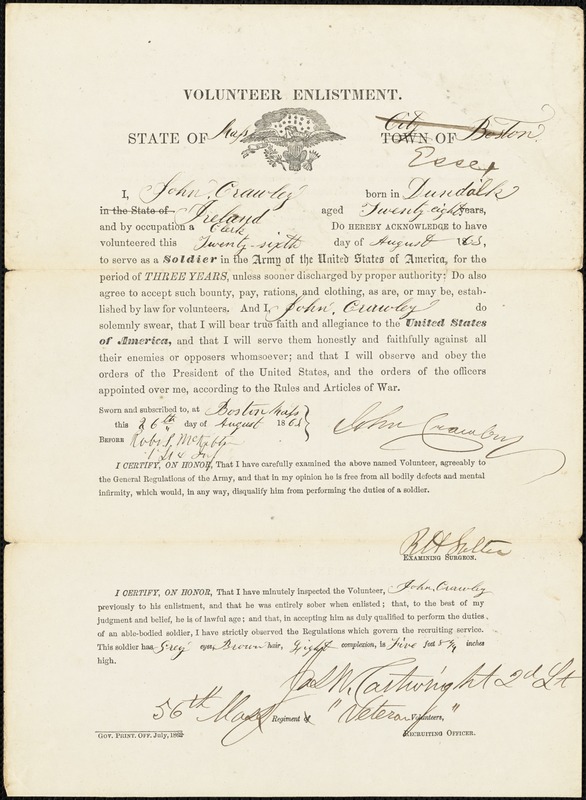 VOLUNTEER ENLISTMENT.
STATE OF Mass City TOWN OF Boston.
Essex
I, John, Crawley born in Dundalk
in the State of Ireland aged Twenty eight years,
and by occupation a Clerk Do HEREBY ACKNOWLEDGE to have
volunteered this Twenty-sixth day of August 1863,
to serve as a Soldier in the Army of the United States of America, for the
period of THREE YEARS, unless sooner discharged by proper authority: Do also
agree to accept such bounty, pay, rations, and clothing, as are, or may be, estab-
lished by law for volunteers. And I, John, Crawley do
solemnly swear, that I will bear true faith and allegiance to the United States
of America, and that I will serve them honestly and faithfully against all
their enemies or opposers whomsoever; and that I will observe and obey the
orders of the President of the United States, and the orders of the officers
appointed over me, according to the Rules and Articles of War.
Sworn and subscribed to, at Boston Mass
this 26th day of August 1863
BEFORE
John Crawley
I CERTIFY, ON HONOR, That I have carefully examined the above named Volunteer, agreeably to
the General Regulations of the Army, and that in my opinion he is free from all bodily defects and mental
infirmity, which would, in any way, disqualify him from performing the duties of a soldier.
EXAMINING SURGEON.
I CERTIFY, ON HONOR, That I have minutely inspected the Volunteer, John, Crawley
previously to his enlistment, and that he was entirely sober when enlisted; that, to the best of my
judgment and belief, he is of lawful age; and that, in accepting him as duly qualified to perform the duties
of an able-bodied soldier, I have strictly observed the Regulations which govern the recruiting service.
This soldier has Grey eyes, Brown hair, Light complexion, is Five feet inches
high.
Cartwright 2d Lt
56th Mass Regiment of "Veteran Volunteers,"
GOV. PRINT. OFF. July, 1862. RECRUITING OFFICER.